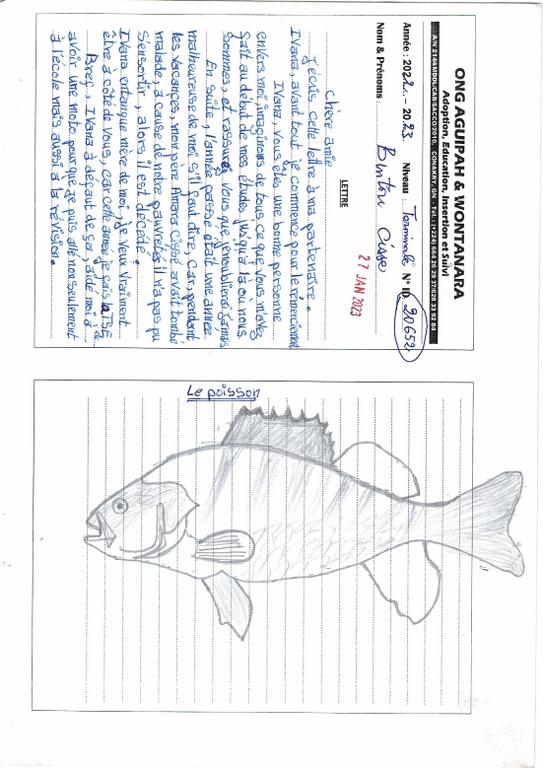 ONG AGUIPAH & WONTANARA
Adoption, Education, Insertion et Suivi
Année : 2022 - 2023 Niveau Terminale N° ID 20652
Nom & Prénoms Bintou Cisse
27 JAN 2023
LETTRE
Chère amie
J'écris cette lettre à ma partenaire.
Ivana, avant tout je commence pour le rémerciement
Ivana, vous êtes une bonne personne
envers moi, imaginons de tous ce que vous m'avez
fait au début de mes études jusqu'à là où nous
sommes, et rassurez vous que je n'oublierai jamais
En suite, l'année passé était une année
malheureuse de moi s'il faut dire, car, pendant
les vacances, mon père Amara Cissé avait tombé
malade, à cause de notre pauvreté il n'a pas pu
Sensortir, alors il est décédé.
Ivana, entanque mère de moi, je veux vraiment
être à côté de vous, car cette année je fais la TSE
Bref, Ivana à défaut de ça, aide moi à
avoir une moto pour que je puis allé non seulement
à l'école mais aussi à la révision.
Le poisson